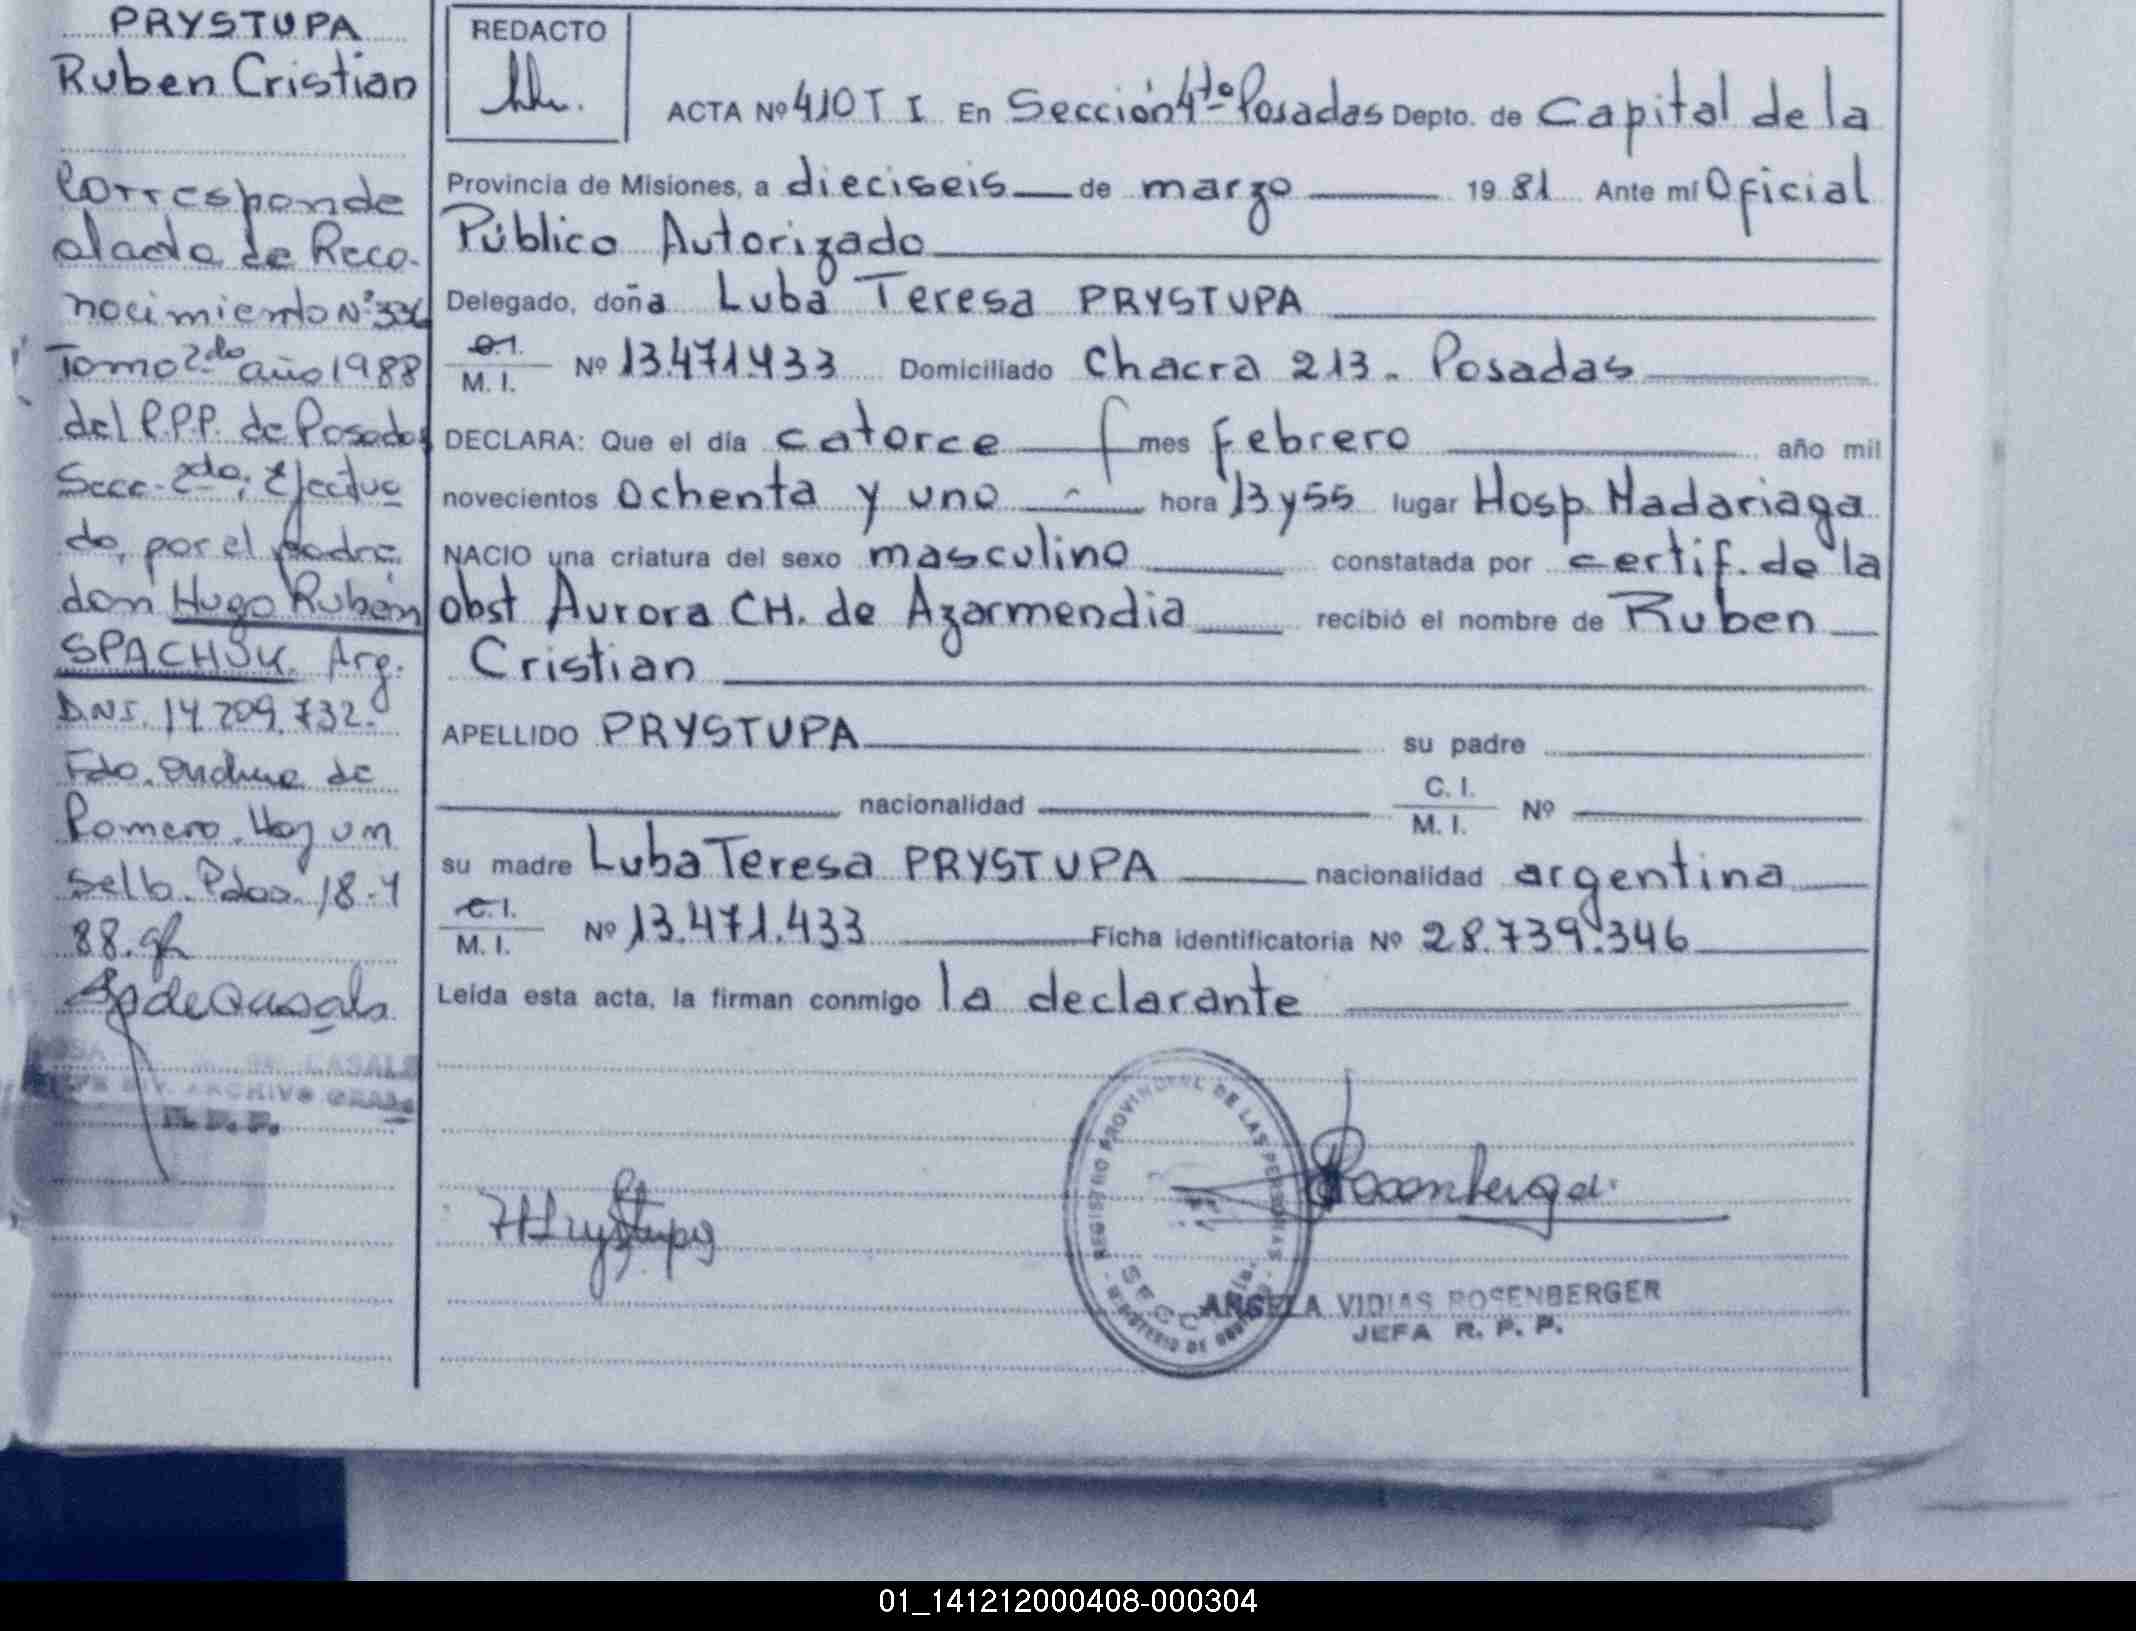 PRYSTUPA
Ruben Cristian
Corresponde
al acta de Reco-
nocimiento Nº 336
Tomo 2do año 1988
del R.P.P. de Posadas
Secc. 2da, Efectua
do, por el padre
don Hugo Rubén
SPACHUK. Arg.
D.N.I. 14.209.732.
Fdo. de
Romero. Hay un
sello. Pdas. 18-4
88.
DE CASALS
DIV. ARCHIVO GRAL
R. P. P.
REDACTO
ACTA Nº 410 T I En Sección 4ta Posadas Depto. de Capital de la
Provincia de Misiones, a dieciseis de marzo 19 81 Ante mí Oficial
Público Autorizado
Delegado, doña Luba Teresa PRYSTUPA
C.I.
M. I. Nº 13.471.433 Domiciliado Chacra 213. Posadas
DECLARA: Que el día catorce mes Febrero año mil
novecientos ochenta y uno hora 13 y 55 lugar Hosp. Madariaga
NACIO una criatura del sexo masculino constatada por certif. de la
obst Aurora CH. de Azarmendia recibió el nombre de Ruben
Cristian
APELLIDO PRYSTUPA su padre
nacionalidad C. I.
M. I. Nº
su madre Luba Teresa PRYSTUPA nacionalidad argentina
C. I.
M. I. Nº 13.471.433 Ficha identificatoria Nº 28.739.346
Leída esta acta, la firman conmigo la declarante
REGISTRO PROVINCIAL DE LAS PERSONAS
SECC
MINISTERIO DE GOBIERNO
ANGELA VIDIAS ROSENBERGER
JEFA R. P. P.
01_141212000408-000304